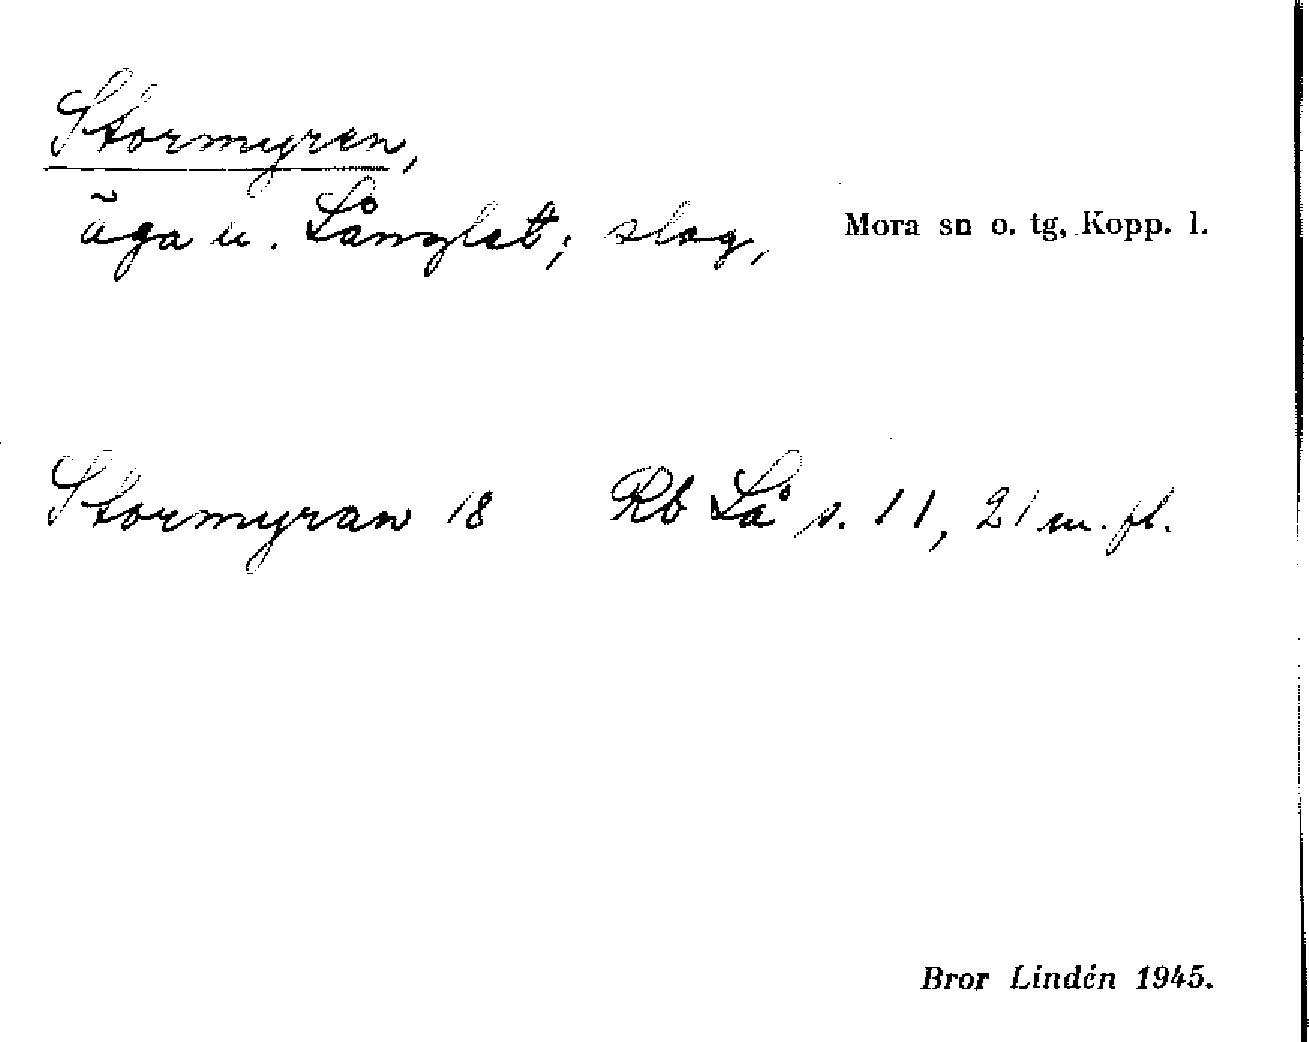 Stormyren,
äga u. Långlet; slog,
Mora sn o. tg, Kopp. l.
Stormyran 18 Rb Lå s. 11, 21 m. fl.
Bror Lindén 1945.